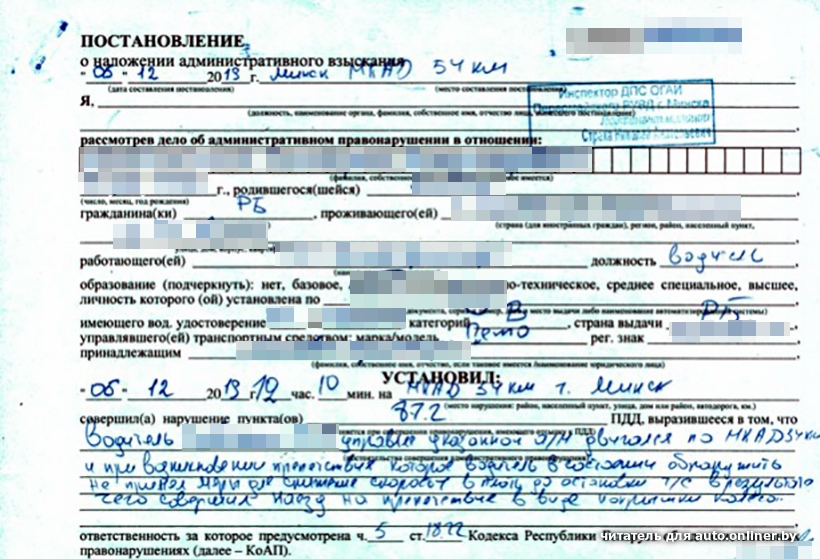 ПОСТАНОВЛЕНИЕ
о наложении административного взыскания
"06" 12 2013 г. Минск МКАД 54 км
(дата составления постановления) (место составления постановления)
Я,
Инспектор ДПС ОГАИ
Первомайского РУВД г. Минска
(должность, наименование органа, фамилия, собственное имя, отчество лица,
рассмотрев дело об административном правонарушении в отношении:
(фамилия, собственное
г., родившегося(шейся)
(число, месяц, год рождения)
гражданина(ки) РБ, проживающего(ей)
(страна (для иностранных граждан), регион, район, населенный пункт,
работающего(ей) должность водитель
образование (подчеркнуть): нет, базовое, о-техническое, среднее специальное, высшее,
личность которого (ой) установлена по
имеющего вод. удостоверение категорий В, страна выдачи РБ
управлявшего(ей) транспортным средством: марка/модель Пежо рег. знак
принадлежащим
(фамилия, собственное имя, отчество, если таковое имеется /наименование юридического лица)
УСТАНОВИЛ:
"06" 12 2013 г. 12 час. 10 мин. на МКАД 54 км г. Минск
(место нарушения: район, населенный пункт, улица, дом или район, автодорога, км.)
совершил(а) нарушение пункта(ов) 87.2 ПДД, выразившееся в том, что
Водитель управляя указанной а/м двигался по МКАД 54 км
и при возникновении препятствия которое водитель в состоянии обнаружить
не принял меры для снижения скорости вплоть до остановки т/с в результате
чего совершил наезд на препятствие в виде покрышки колеса.
ответственность за которое предусмотрена ч. 5 ст. 18.22 Кодекса Республики
правонарушениях (далее – КоАП).
читатель для auto.onliner.by